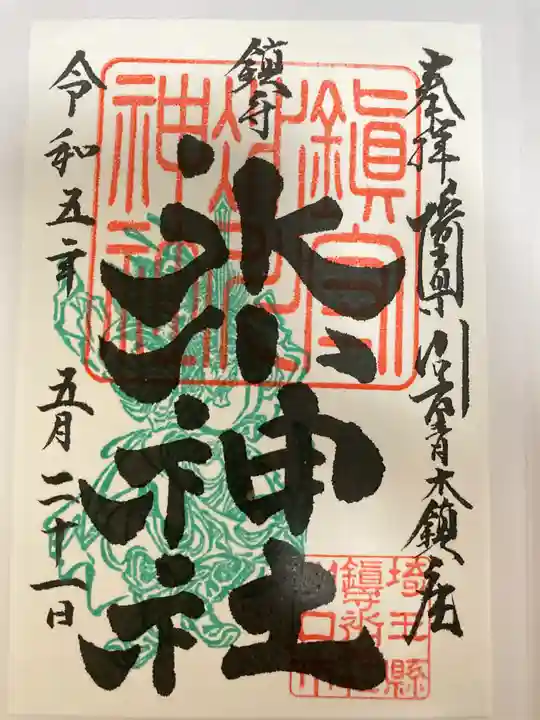 奉拝 埼玉県川口市青木鎮座
鎮守
氷川神社
令和五年 五月二十一日
鎮守
氷川
神社
埼玉縣
鎮守氷
川口市